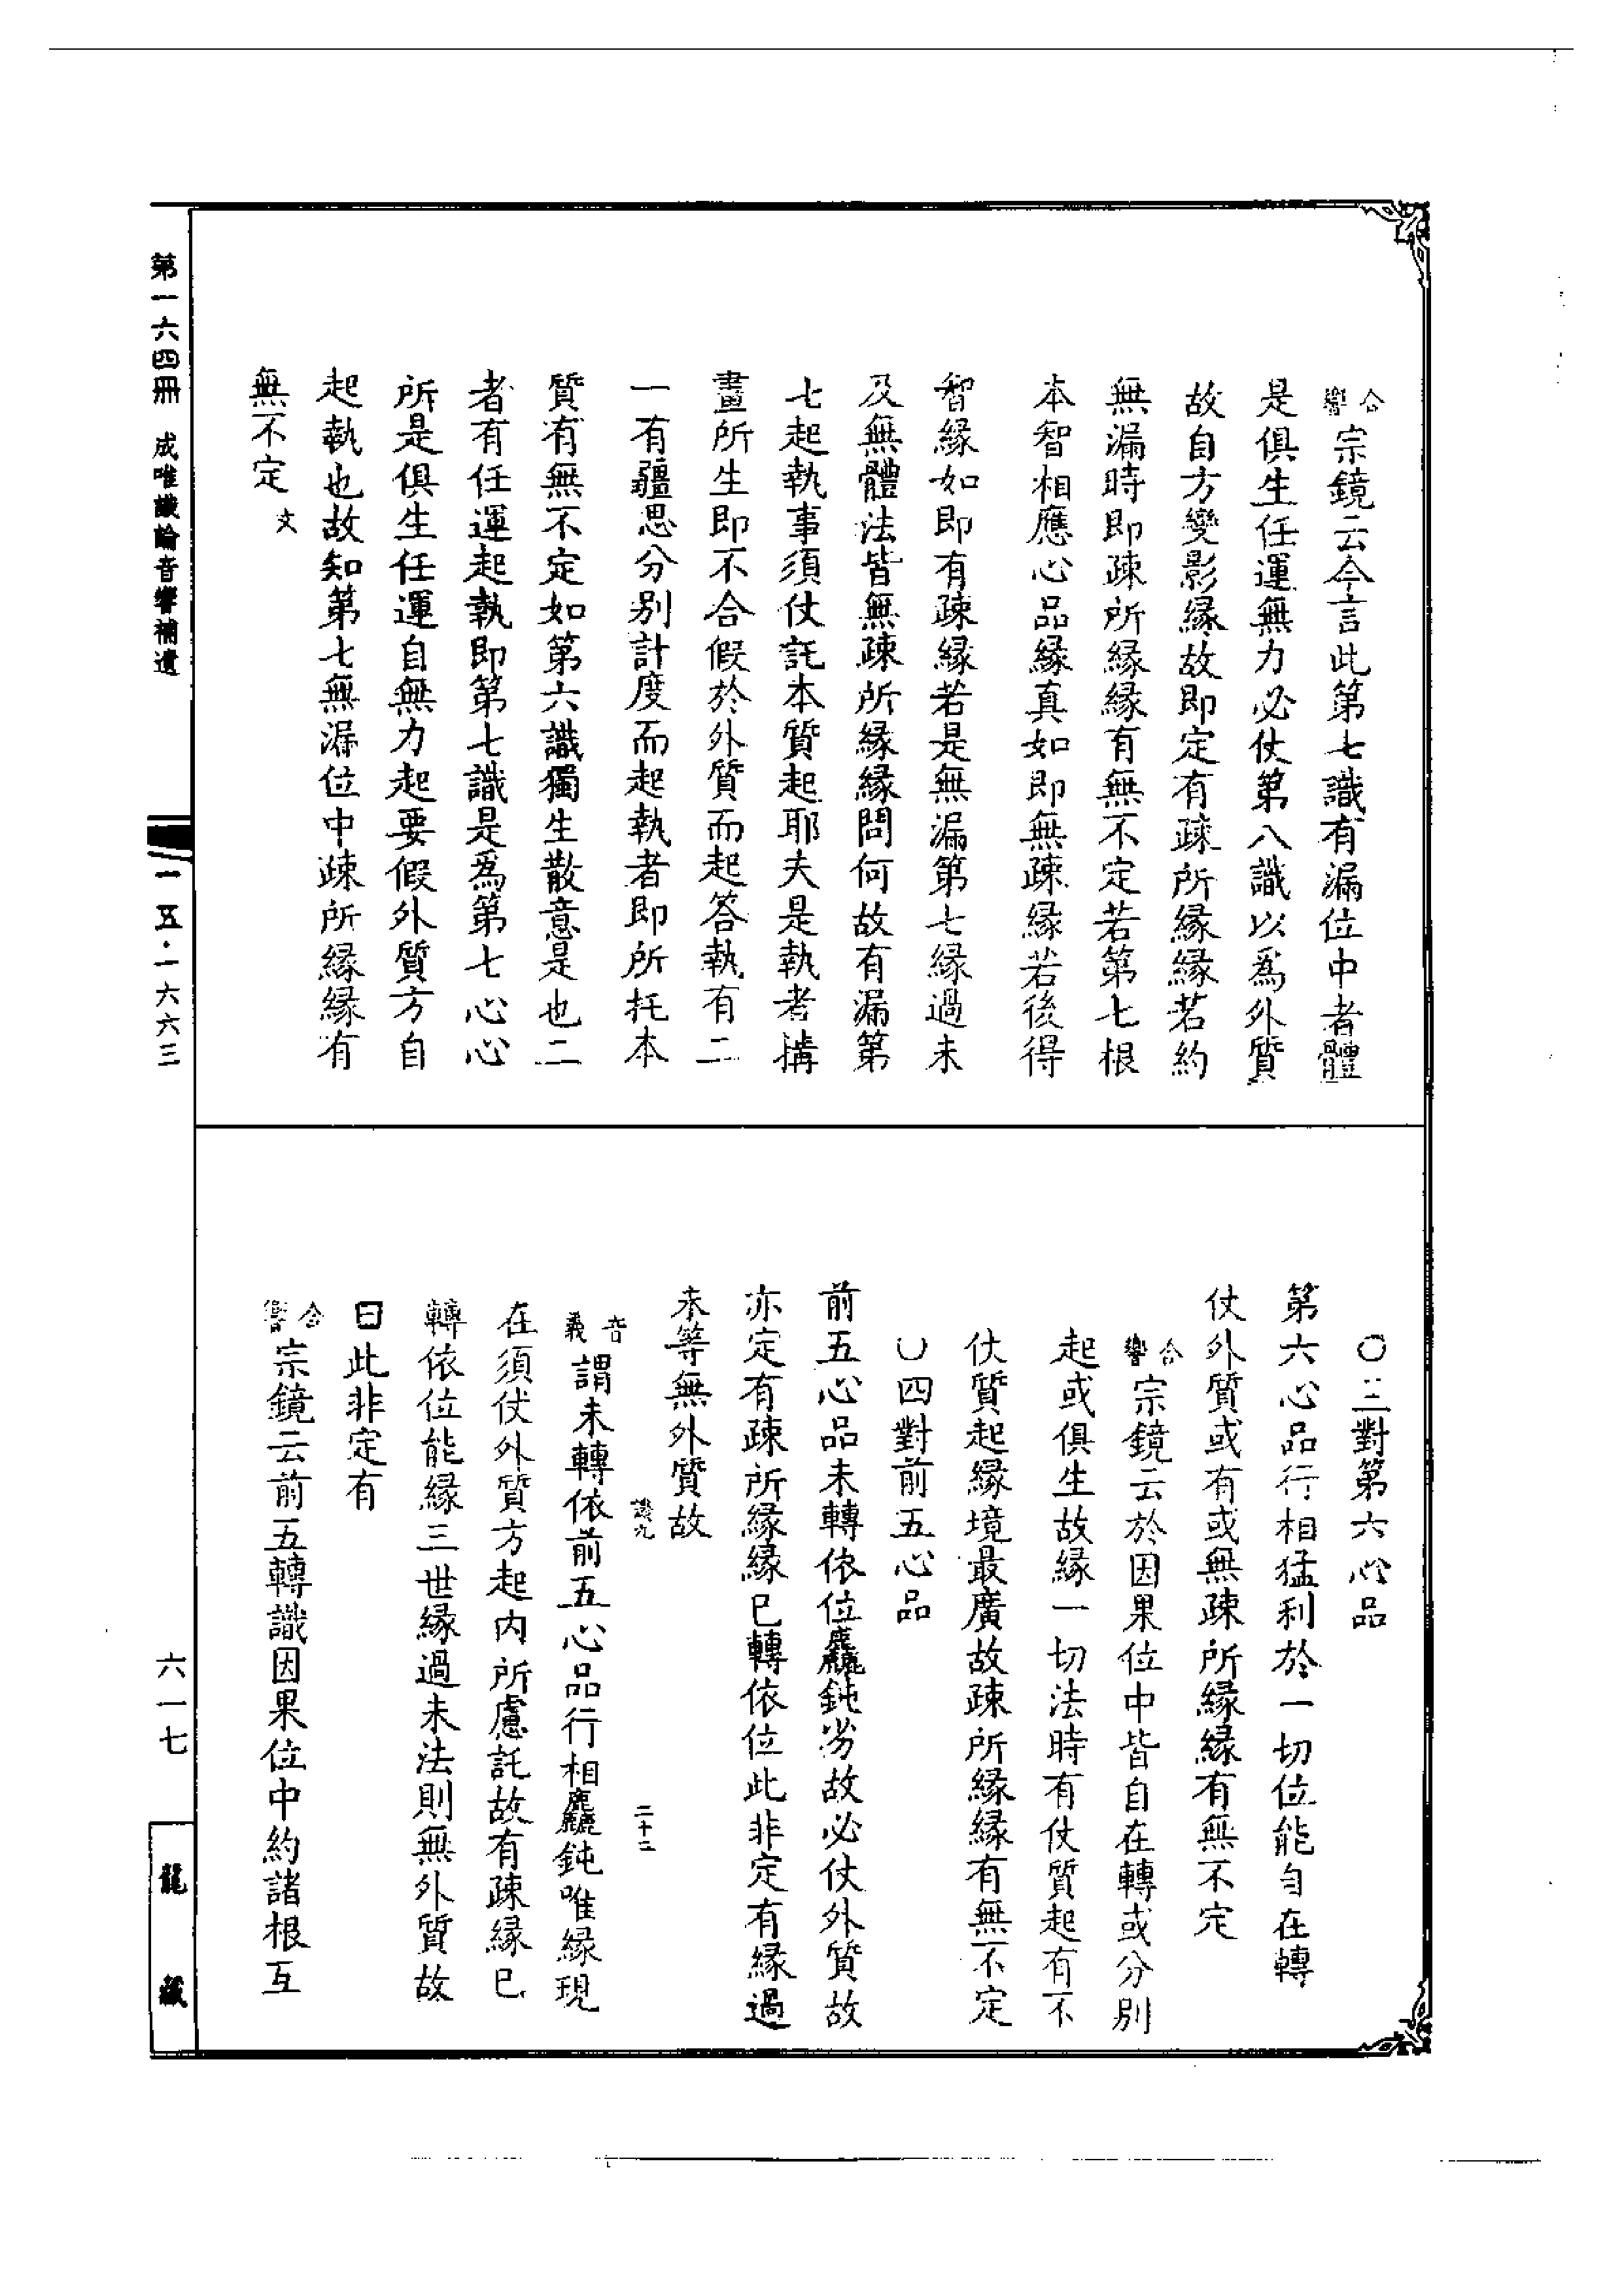 合響宗鏡云今言此第七識有漏位中者體
是俱生任運無力必仗第八識以爲外質
故自方變影緣故即定有疎所緣緣若約
無漏時即疎所緣緣有無不定若第七根
本智相應心品緣真如即無疎緣若後得
智緣如即有疎緣若是無漏第七緣過未
及無體法皆無疎所緣緣問何故有漏第
七起執事須仗託本質起耶夫是執者搆
畫所生即不合假於外質而起答執有二
一有疆思分別計度而起執者即所托本
質有無不定如第六識獨生散意是也二
者有任運起執即第七識是爲第七心心
所是俱生任運自無力起要假外質方自
起執也故知第七無漏位中疎所緣緣有
無不定文
○三對第六心品
第六心品行相猛利於一切位能自在轉
仗外質或有或無疎所緣緣有無不定
合響宗鏡云於因果位中皆自在轉或分別
起或俱生故緣一切法時有仗質起有不
仗質起緣境最廣故疎所緣緣有無不定
○四對前五心品
前五心品未轉依位麤鈍劣故必仗外質故
亦定有疎所緣緣已轉依位此非定有緣過
未等無外質故
二十二
音義謂未轉依前五心品行相麤鈍唯緣現
在須仗外質方起內所慮託故有疎緣已
轉依位能緣三世緣過未法則無外質故
曰此非定有
合響宗鏡云前五轉識因果位中約諸根互
第一六四冊 成唯識論音響補遺
一一五·一六六三
六一七
龍藏